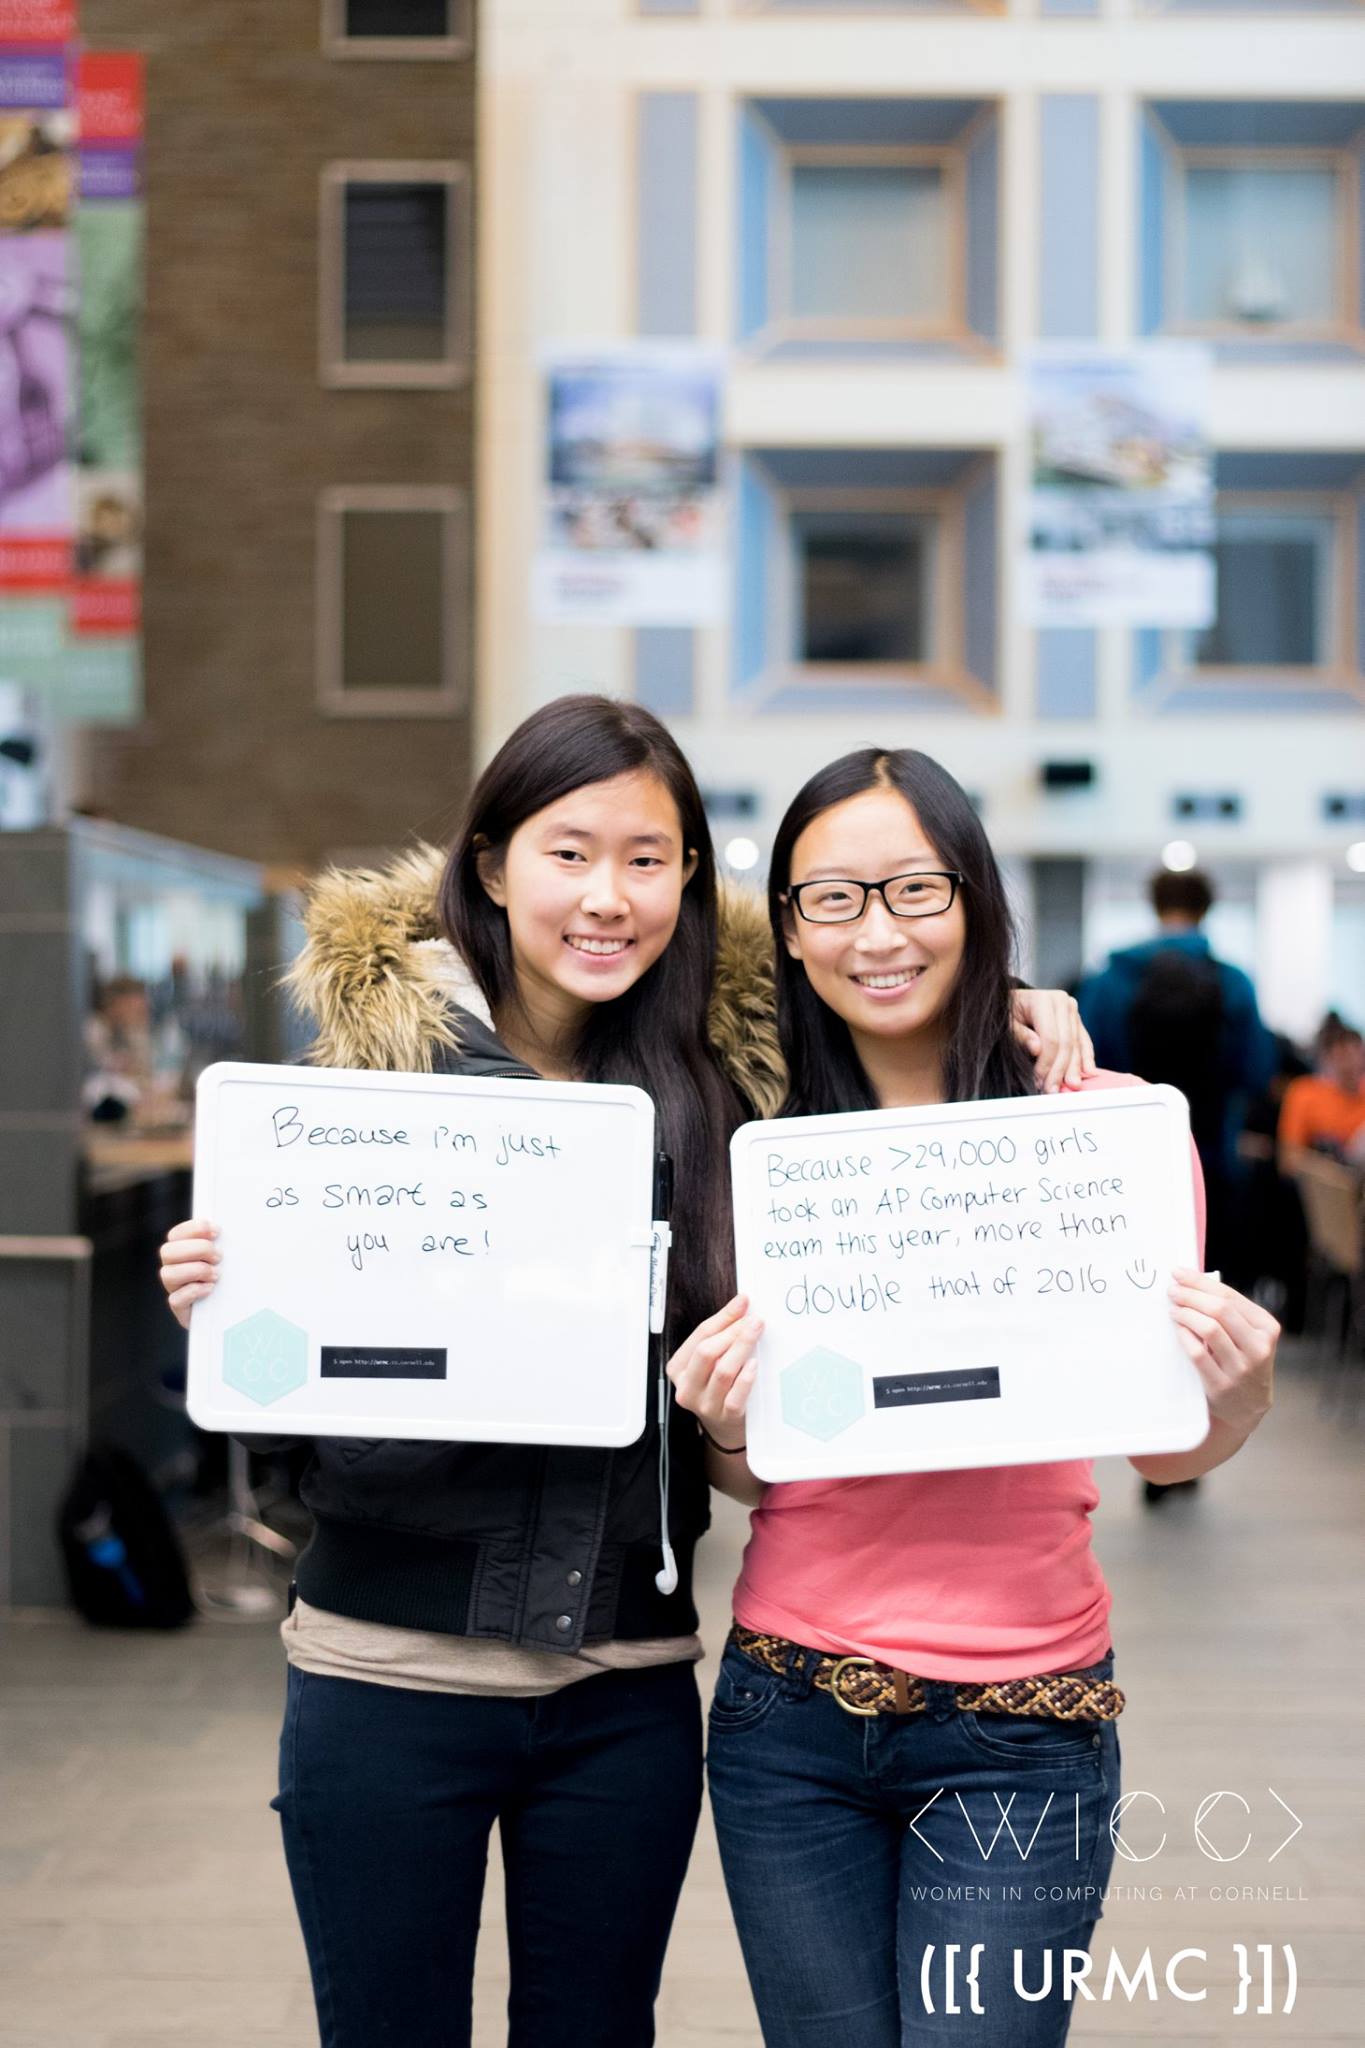 Because I'm just
as smart as
you are!
WICC
$ open http://urmc.cs.cornell.edu
Because >29,000 girls
took an AP Computer Science
exam this year, more than
double that of 2016
WICC
$ open http://urmc.cs.cornell.edu
<WICC>
WOMEN IN COMPUTING AT CORNELL
([{ URMC }])